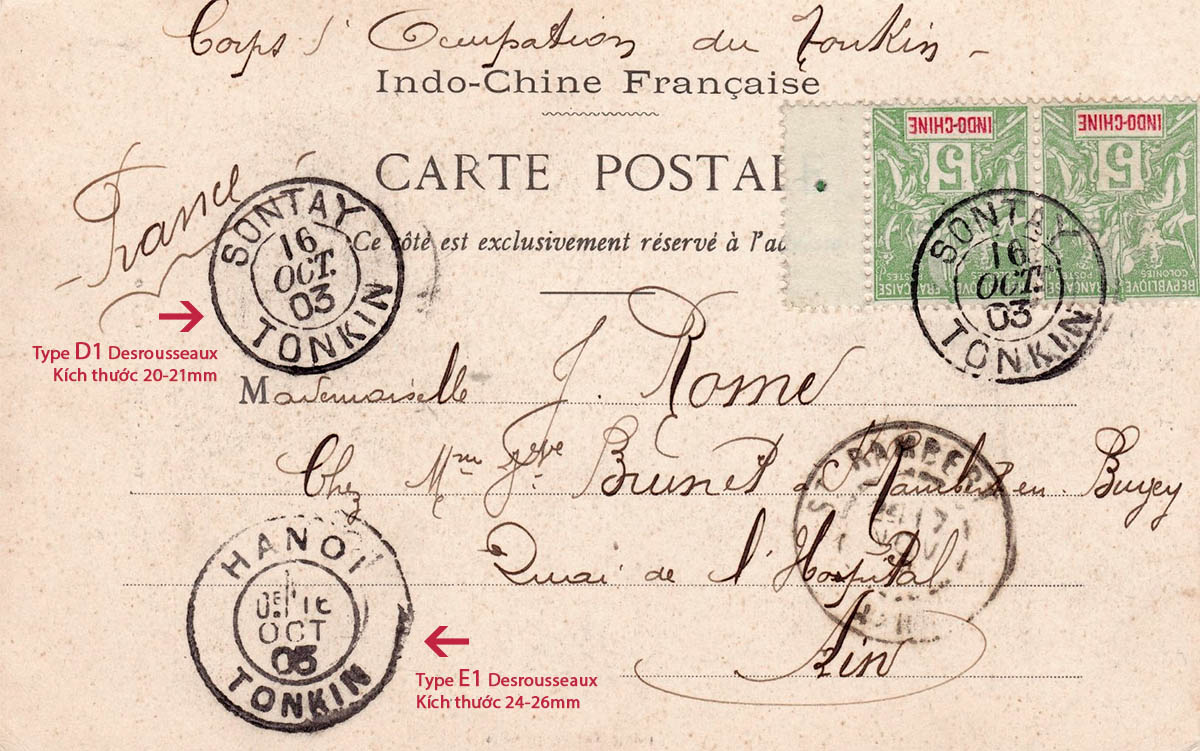 Corps d'Occupation du Tonkin -
Indo-Chine Française
CARTE POSTAL
France
Ce côté est exclusivement réservé à l'ad
INDO-CHINE
5
RÉPUBLIQUE FRANÇAISE
COLONIES POSTES
INDO-CHINE
5
RÉPUBLIQUE FRANÇAISE
COLONIES POSTES
SONTAY
16
OCT.
03
TONKIN
SONTAY
16
OCT.
03
TONKIN
Type D1 Desrousseaux
Kích thước 20-21mm
Mademoiselle J. Rome
Chez Mme Vve Brunet à St Rambert en Bugey
Quai de l'Hospital
Ain
ST RAMBERT
HANOI
16
OCT
TONKIN
Type E1 Desrousseaux
Kích thước 24-26mm